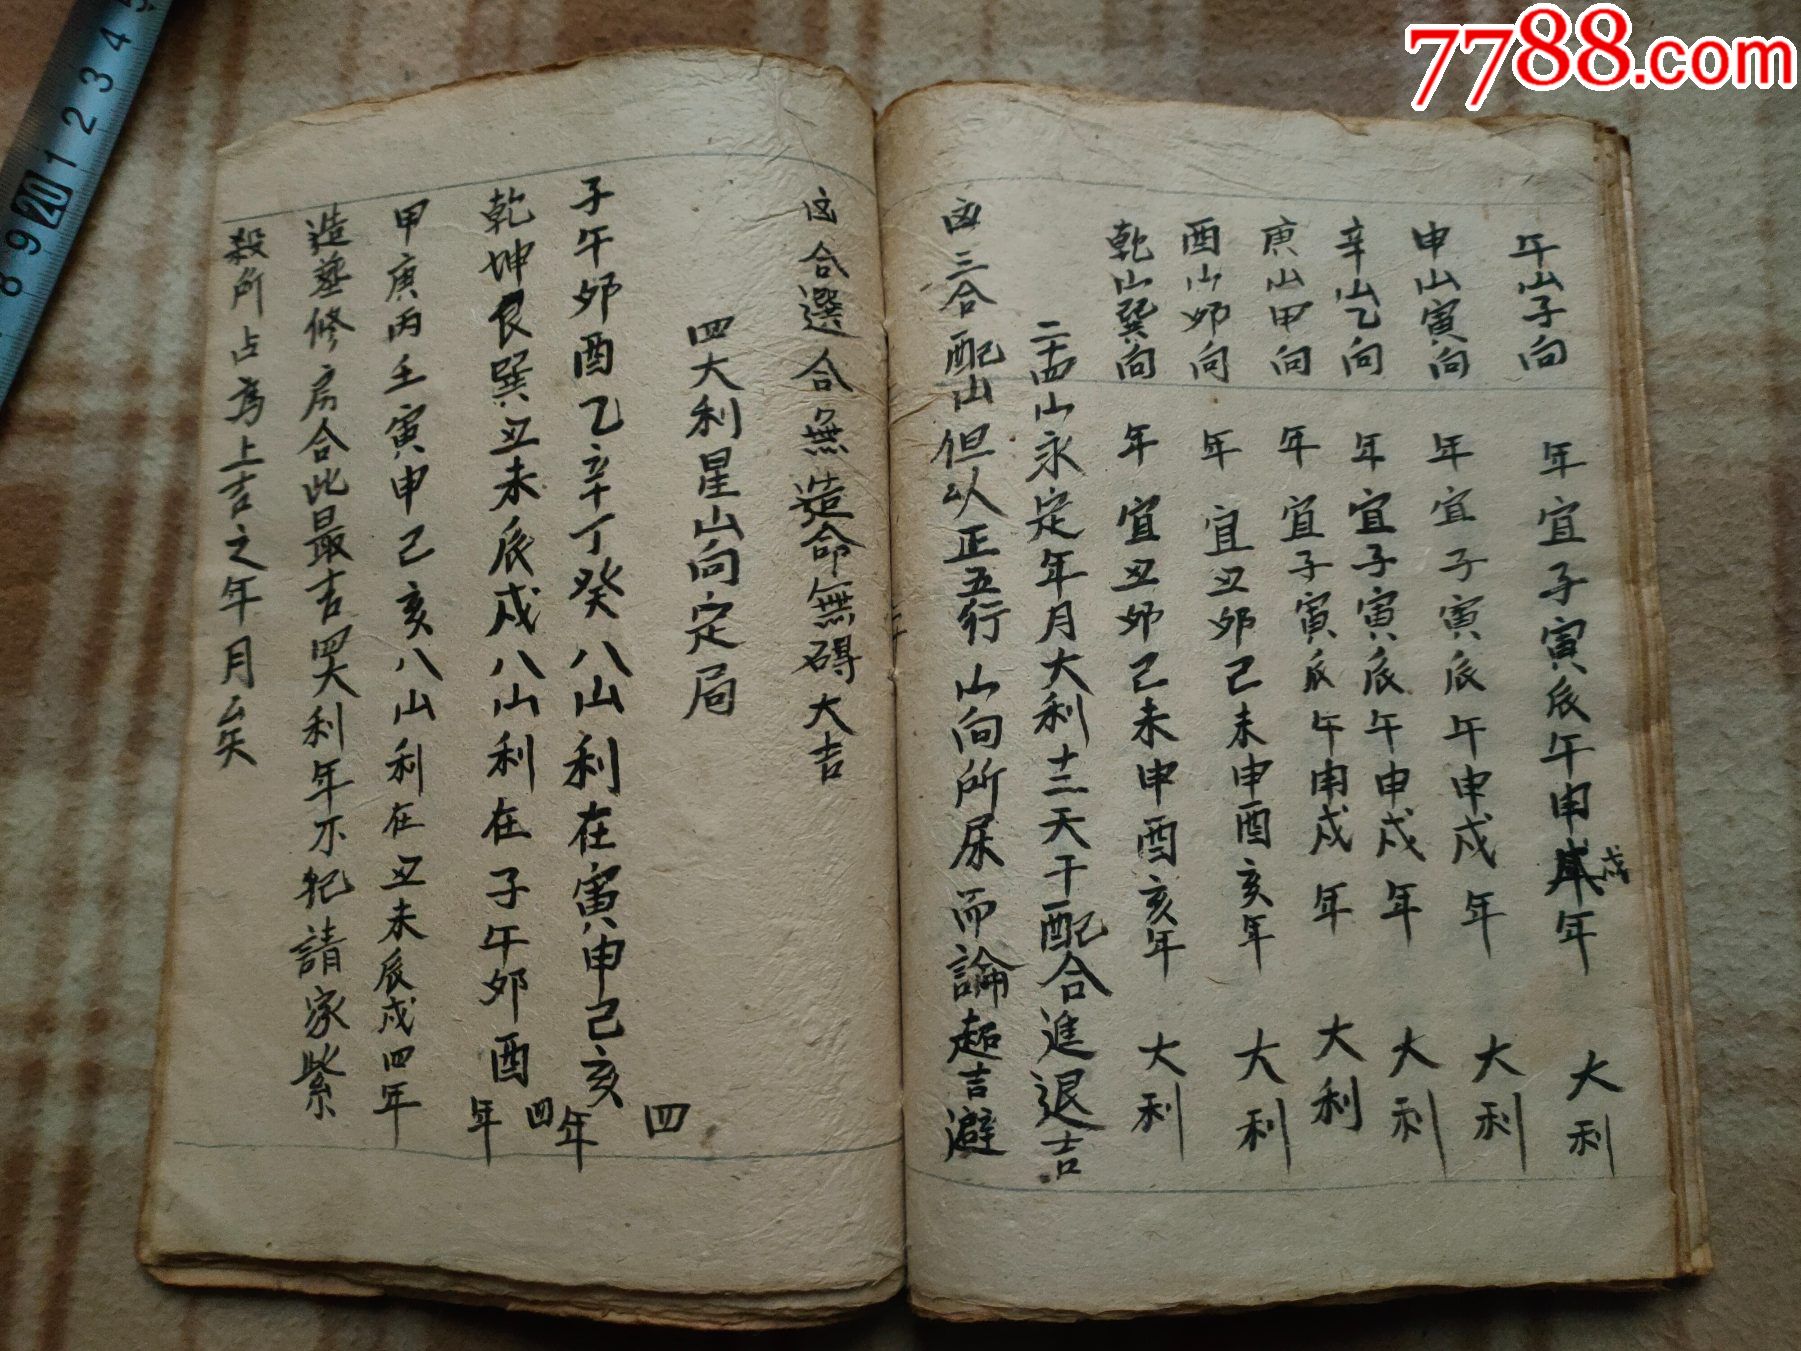 7788.com
午山子向 年宜子寅辰午申戌年 大利
申山寅向 年宜子寅辰午申戌年 大利
辛山乙向 年宜子寅辰午申戌年 大利
庚山甲向 年宜子寅辰午申戌年 大利
酉山卯向 年宜丑卯己未申酉亥年 大利
乾山巽向 年宜丑卯己未申酉亥年 大利
二十四山永定年月大利十二天干配合進退吉
凶三合配山但以正五行山向所屎而論起吉避
凶合選合無造命無碍大吉
四大利星山向定局
子午卯酉乙辛丁癸八山利在寅申己亥四年
乾坤艮巽丑未辰戌八山利在子午卯酉四年
甲庚丙壬寅申己亥八山利在丑未辰戌四年
造塟修房合此最吉四大利年不犯請家紫
殺所占為上吉之年月矣
1 2 3 4 5
8 9 20